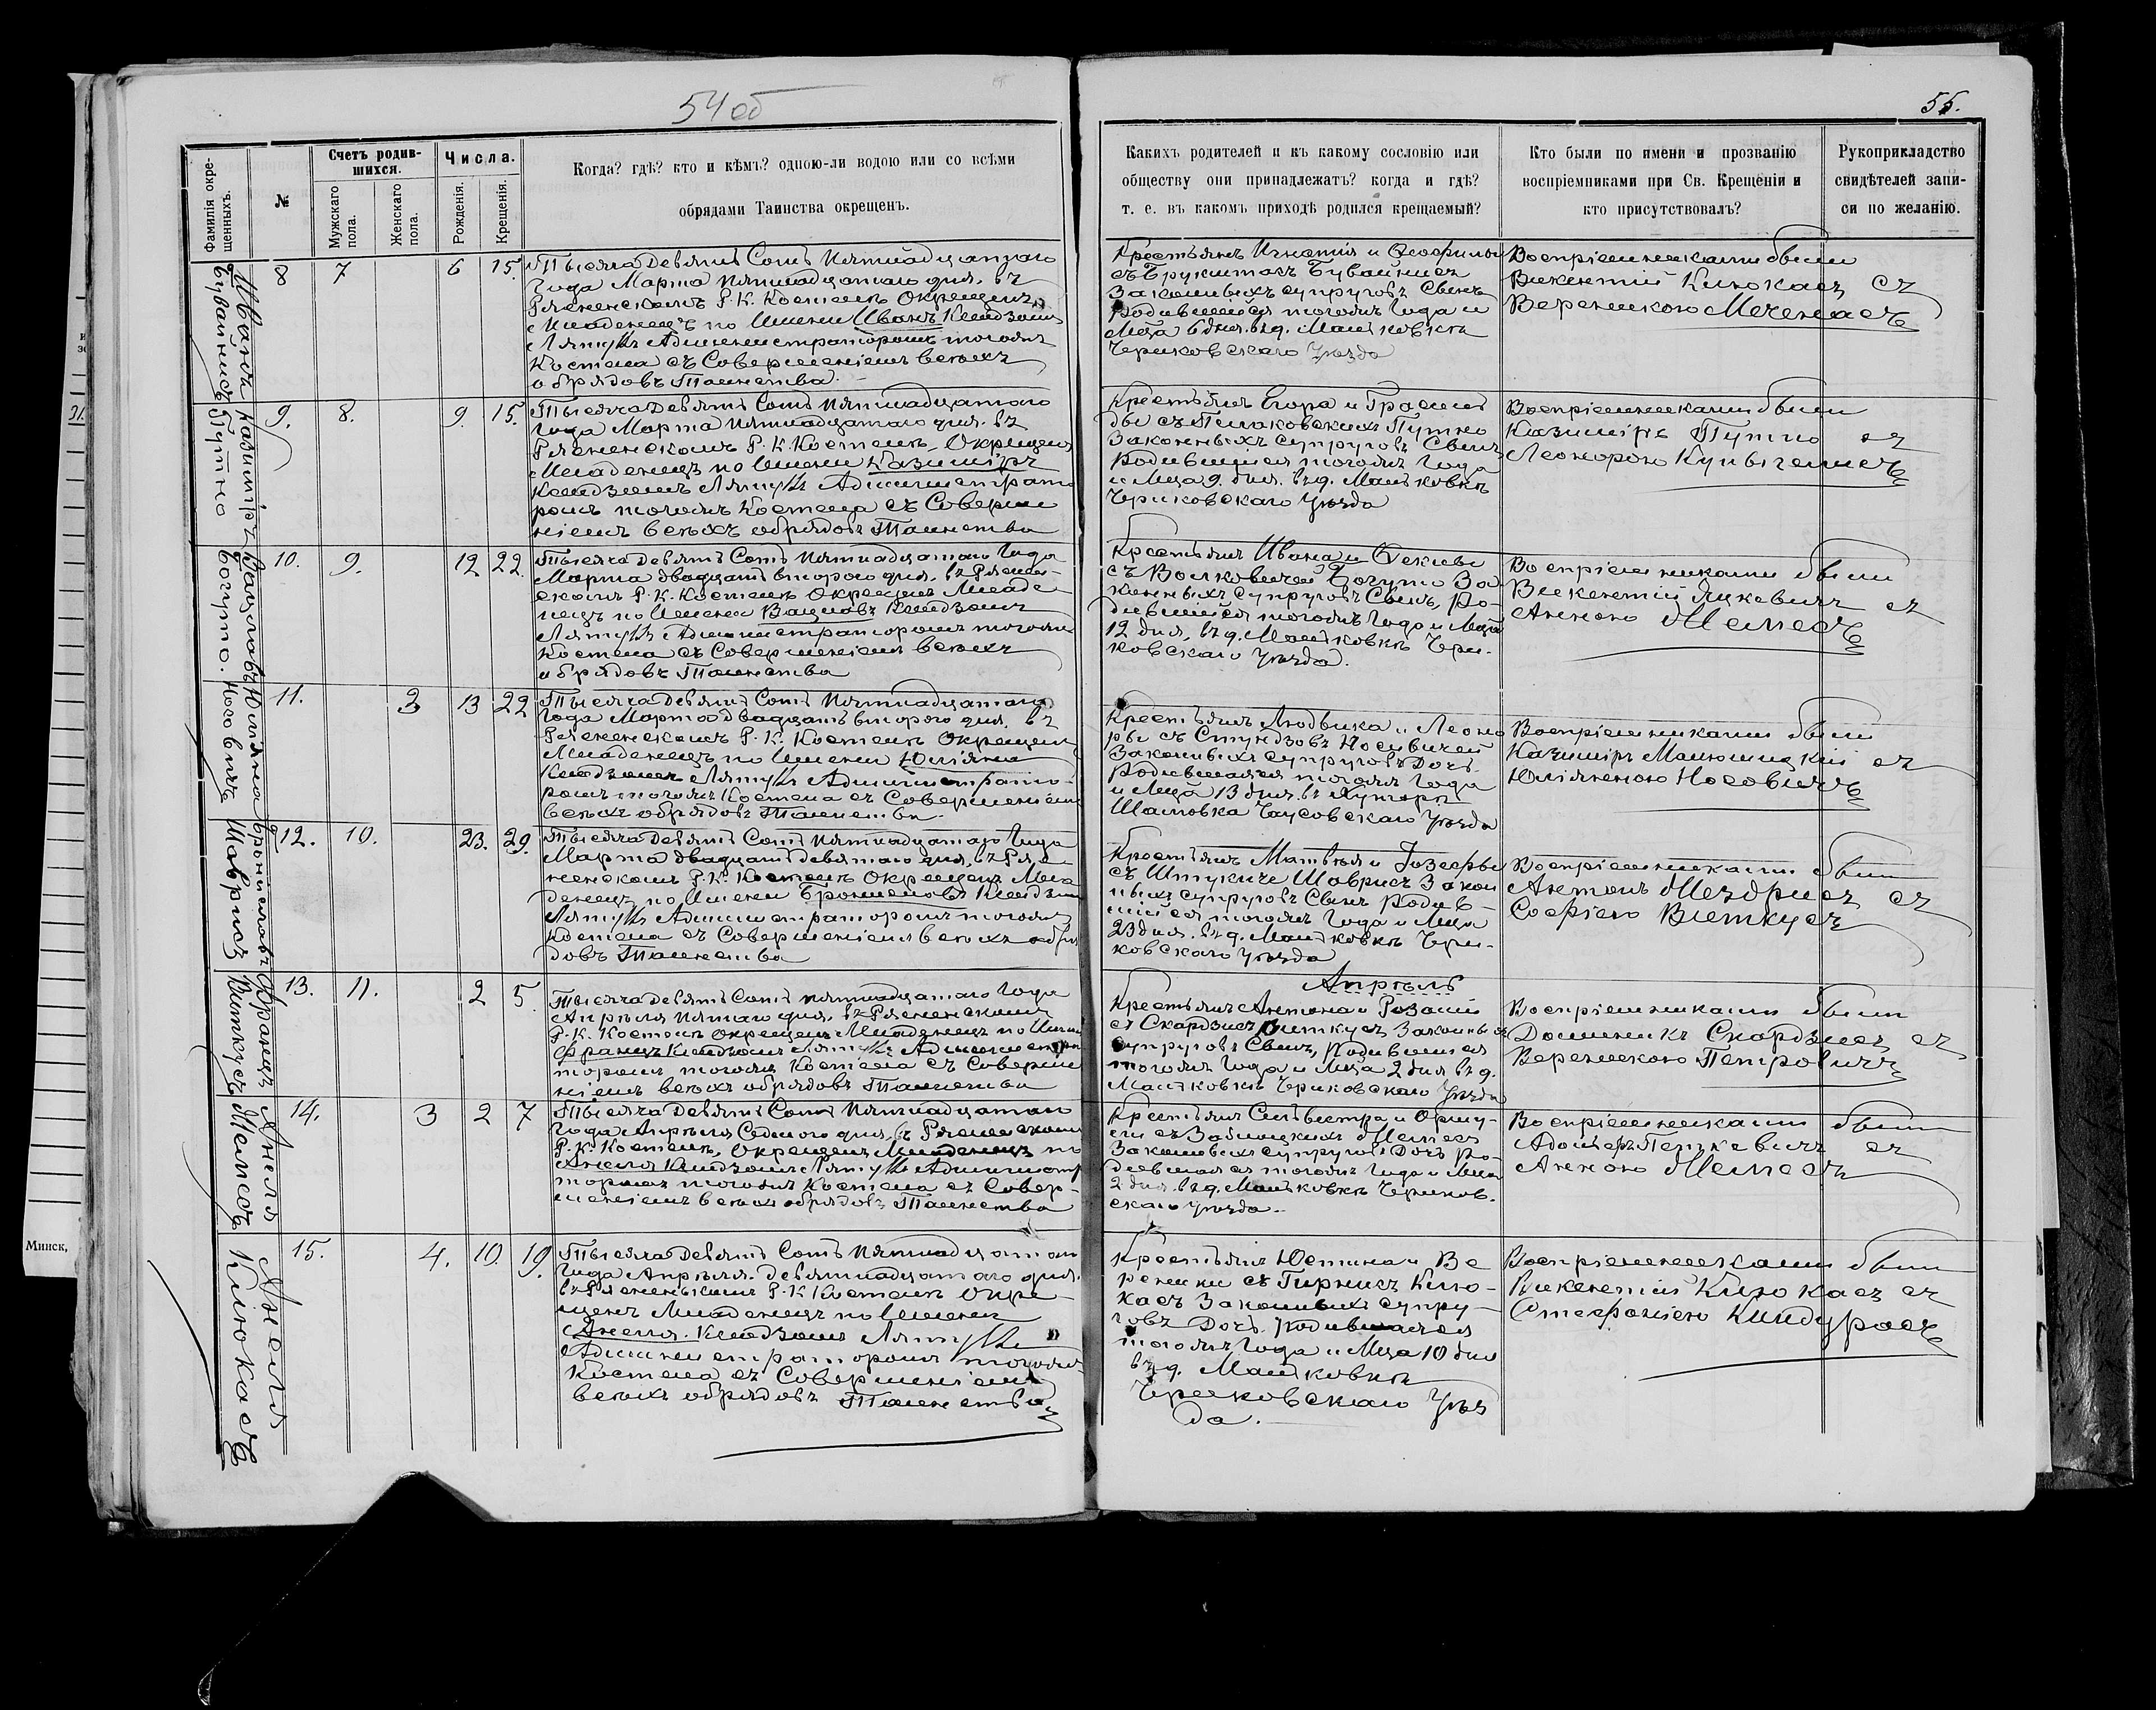 54 об
55.
Фамилія окре-
щенныхъ.
№
Счетъ родив-
шихся.
Мужскаго
пола.
Женскаго
пола.
Числа.
Рожденія.
Крещенія.
Когда? гдѣ? кто и кѣмъ? одною-ли водою или со всѣми
обрядами Таинства окрещенъ.
Какихъ родителей и къ какому сословію или
обществу они принадлежатъ? когда и гдѣ?
т. е. въ какомъ приходѣ родился крещаемый?
Кто были по имени и прозванію
воспріемниками при Св. Крещеніи и
кто присутствовалъ?
Рукоприкладство
свидѣтелей запи-
си по желанію.
Иванъ
Бувайнисъ
8 7 6 15.
Тысяча девятьсотъ пятнадцатаго
года Марта пятнадцатаго дня. въ
Рясненскомъ Р. К. Костелѣ Окрещенъ
Младенецъ по Имени Иванъ Ксендзомъ
Администраторомъ тогожъ
Костела съ Совершеніемъ всѣхъ
обрядовъ Таинства.
Крестьянъ Игнатія и Теофилы
съ Бувайнисъ
Законныхъ супруговъ Сынъ
родившійся тогожъ года и
Мца 6 дня. въ д. Машковкѣ
Чериковскаго уѣзда
Воспріемниками были
Викентій Клюкасъ съ
Вероникою
Казиміръ
Путно
9. 8. 9. 15.
Тысяча девятьсотъ пятнадцатаго
года Марта пятнадцатаго дня. въ
Рясненскомъ Р. К. Костелѣ, Окрещенъ
Младенецъ по Имени Казиміръ
Ксендзомъ Администрато
ромъ тогожъ Костела съ Соверше
ніемъ всѣхъ обрядовъ Таинства
Крестьянъ Егора и
съ Путно
Законныхъ супруговъ Сынъ
родившійся тогожъ года
и Мца 9. дня. въ д. Машковкѣ
Чериковскаго уѣзда
Воспріемниками были
Казиміръ Путно съ
Леонорою
Вацлавъ
Богутто.
10. 9. 12 22.
Тысяча девятьсотъ пятнадцатаго года
Марта двадцать второго дня. въ Ряснен-
скомъ Р. К. Костелѣ Окрещенъ Младе
нецъ по Имени Вацлавъ Ксендзомъ
Администраторомъ тогожъ
Костела съ Совершеніемъ всѣхъ
обрядовъ Таинства
Крестьянъ Ивана и Феклы
съ Волковичей За
конныхъ супруговъ Сынъ, ро-
дившійся тогожъ года и Мца
12 дня, въ д. Машковкѣ Чери-
ковскаго уѣзда.
Воспріемниками были
Викентій Яцкевичъ съ
Анною
Юліяна
Носовичъ
11. 2 13 22
Тысяча девятьсотъ пятнадцатаго
года Марта двадцать второго дня. въ
Рясненскомъ Р. К. Костелѣ Окрещенъ
Младенецъ по Имени Юліяна
Ксендзомъ Администрато-
ромъ тогожъ Костела съ Совершеніемъ
всѣхъ обрядовъ Таинства.
Крестьянъ Людвика и Леоно
ры съ Носовичей
Законныхъ супруговъ Дочь
родившаяся тогожъ года
и Мца 13 дня. въ Хуторѣ
Шамовка Чаусовскаго уѣзда
Воспріемниками были
Казиміръ съ
Юліянною Носовичъ
Брониславъ
Шаврисъ
12. 10. 23. 29.
Тысяча девятьсотъ пятнадцатаго года
Марта двадцать девятаго дня, въ Ряс
ненскомъ Р. К. Костелѣ Окрещенъ Мла
денецъ, по Имени Брониславъ Ксендзомъ
Администраторомъ тогожъ
Костела съ Совершеніемъ всѣхъ обря
довъ Таинства
Крестьянъ Матвѣя и Іозефы
съ Шаврисъ Закон
ныхъ супруговъ Сынъ родив-
шійся тогожъ года и Мца
23 дня. въ д. Машковкѣ Чери-
ковскаго уѣзда
Воспріемниками были
Антонъ съ
Софіею Виткусъ
Апрѣль
Францъ
Виткусъ
13. 11. 2 5.
Тысяча девятьсотъ пятнадцатаго года
Апрѣля пятаго дня, въ Рясненскомъ
Р. К. Костелѣ окрещенъ Младенецъ по Имени
Францъ Ксендзомъ Администра
торомъ тогожъ Костела съ Соверше
ніемъ всѣхъ обрядовъ Таинства
Крестьянъ Антона и Розаліи
съ Скардзисъ Виткусъ Законныхъ
супруговъ Сынъ, родившійся
тогожъ года и Мца 2 дня въ д.
Машковкѣ Чериковскаго уѣзда
Воспріемниками были
Доминикъ Скардзисъ съ
Вероникою Петровичъ
Анеля
14. 3 2 7
Тысяча девятьсотъ пятнадцатаго
года Апрѣля Седьмого дня, въ Рясненскомъ
Р. К. Костелѣ, Окрещенъ Младенецъ по
Анеля Ксендзомъ Администра
торомъ тогожъ Костела съ Совер-
шеніемъ всѣхъ обрядовъ Таинства
Крестьянъ Сильвестра и Оршу-
ли съ Заблоцкихъ
Законныхъ супруговъ Дочь ро-
дившаяся тогожъ года и Мца
2 дня. въ д. Машковкѣ Чериков-
скаго уѣзда.
Воспріемниками были
Адольфъ съ
Анною
Анеля
Клюкасъ
15. 4. 10. 19.
Тысяча девятьсотъ пятнадцатаго
года Апрѣля. девятнадцатаго дня.
въ Рясненскомъ Р. К Костелѣ Окре-
щенъ Младенецъ по Имени
Анеля. Ксендзомъ
Администраторомъ тогожъ
Костела съ Совершеніемъ
всѣхъ обрядовъ Таинства
Крестьянъ Юстина и Ве
роники съ Гирнисъ Клю-
касъ Законныхъ супру-
говъ Дочь. родившаяся
тогожъ года и Мца 10 дня
въ д. Машковкѣ
Чериковскаго уѣз
да.
Воспріемниками были
Викентій Клюкасъ съ
Стефаніею
Минск,